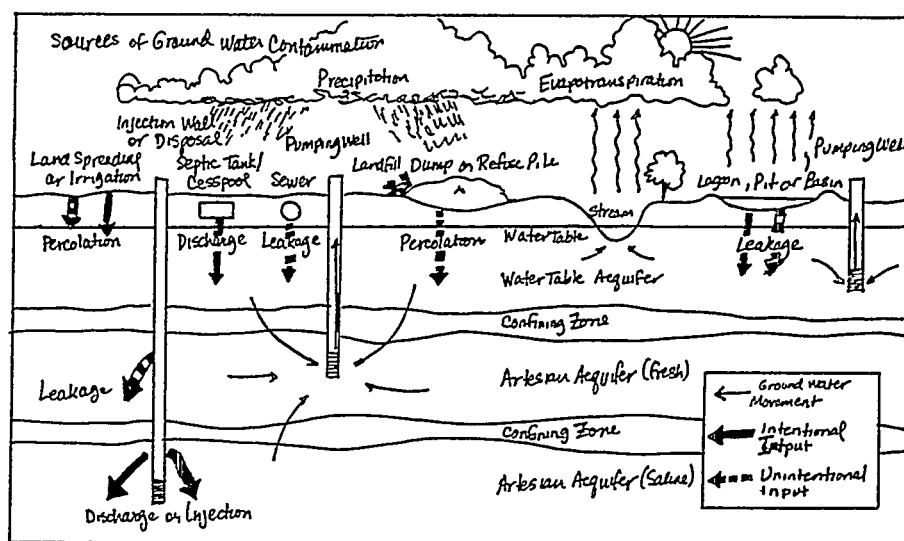 Sources of Ground Water Contamination
Precipitation
Evapotranspiration
Injection Well
or Disposal
Pumping Well
Land Spreading
or Irrigation
Septic Tank/
Cesspool
Sewer
Landfill Dump or Refuse Pile
Pumping Well
Lagon, Pit or Basin
Percolation
Discharge
Leakage
Percolation
Stream
Water Table
Leakage
Water Table Acquifer
Confining Zone
Leakage
Artesian Acquifer (Fresh)
Confining Zone
Artesian Acquifer (Saline)
Discharge or Injection
Ground Water
Movement
Intentional
Input
Unintentional
Input